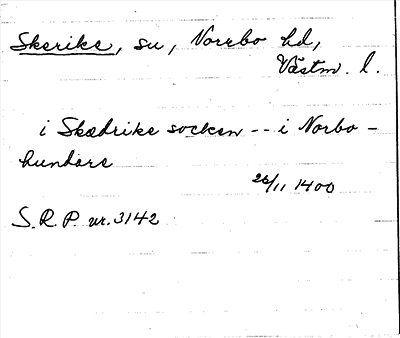 Skerike, sn, Norrbo hd,
Västm. l.
i Skædrike socken -- i Norbo -
hundare
26/11 1400
S.R.P. nr. 3142